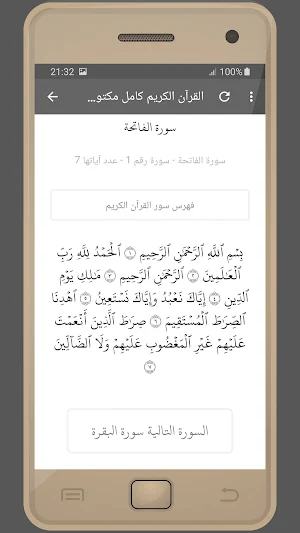 21:32 100%
القرآن الكريم كامل مكتو...
سورة الفاتحة
سورة الفاتحة - سورة رقم 1 - عدد آياتها 7
فهرس سور القرآن الكريم
بِسْمِ ٱللَّهِ ٱلرَّحْمَٰنِ ٱلرَّحِيمِ ١ ٱلْحَمْدُ لِلَّهِ رَبِّ
ٱلْعَٰلَمِينَ ٢ ٱلرَّحْمَٰنِ ٱلرَّحِيمِ ٣ مَٰلِكِ يَوْمِ
ٱلدِّينِ ٤ إِيَّاكَ نَعْبُدُ وَإِيَّاكَ نَسْتَعِينُ ٥ ٱهْدِنَا
ٱلصِّرَٰطَ ٱلْمُسْتَقِيمَ ٦ صِرَٰطَ ٱلَّذِينَ أَنْعَمْتَ
عَلَيْهِمْ غَيْرِ ٱلْمَغْضُوبِ عَلَيْهِمْ وَلَا ٱلضَّآلِّينَ
٧
السورة التالية سورة البقرة